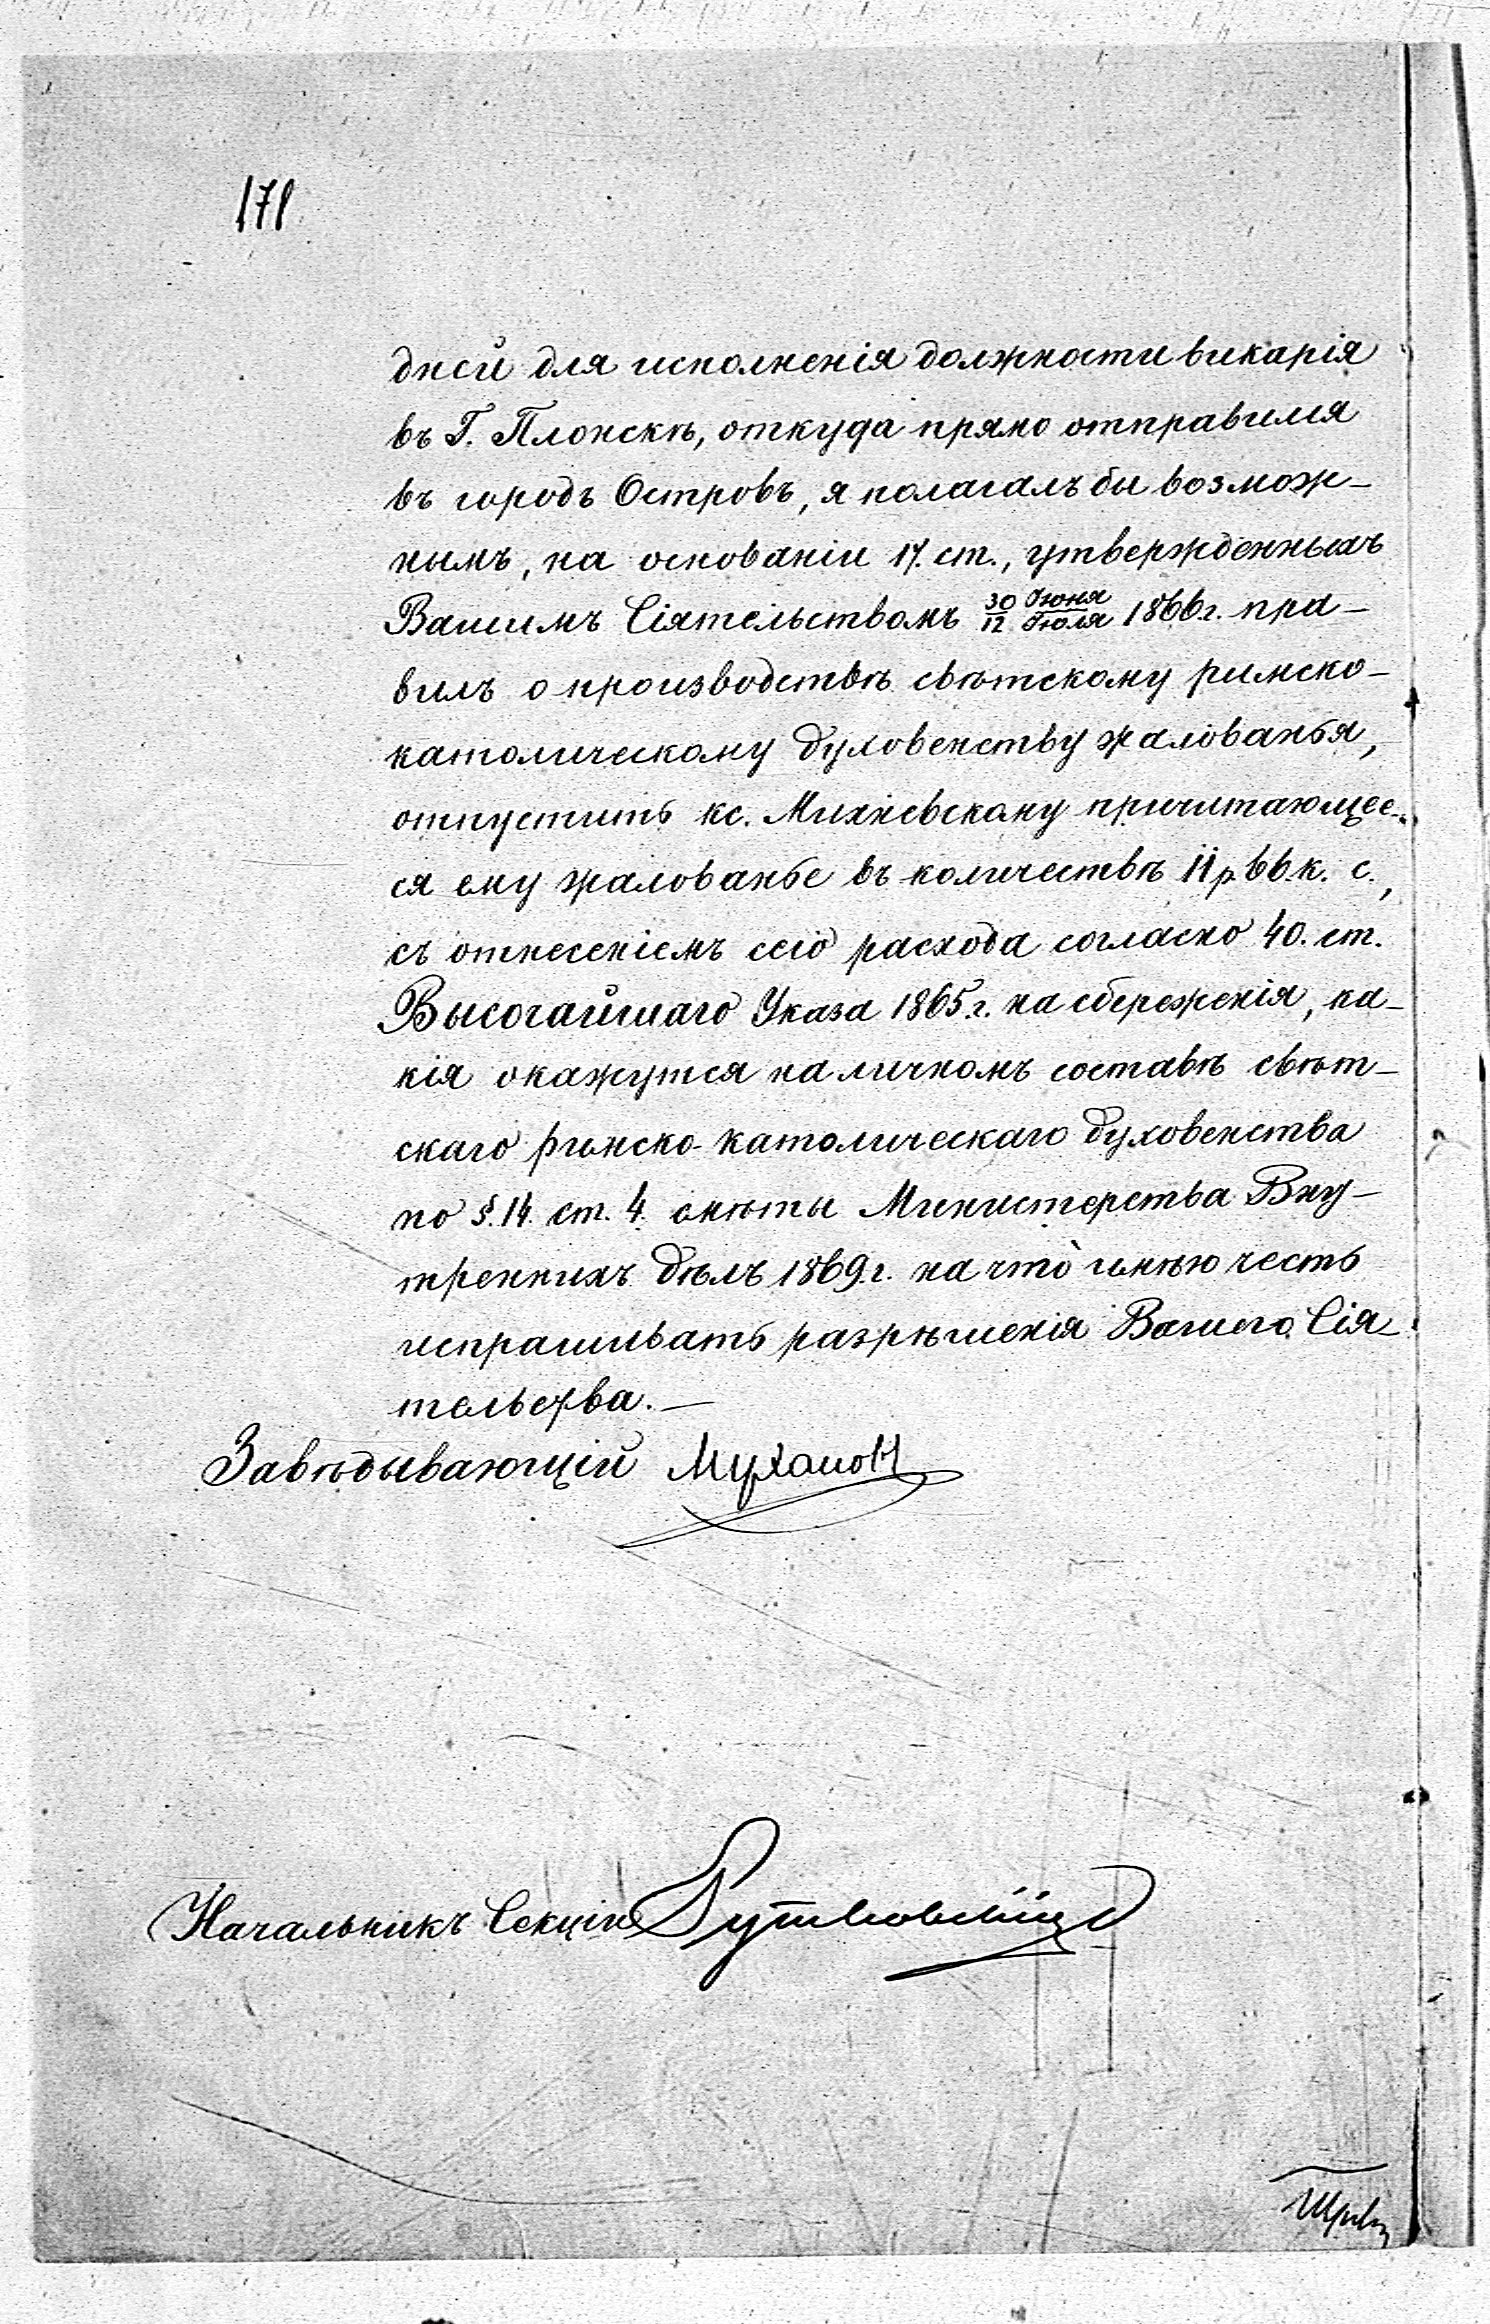 171
дней для исполненія должности викарія
въ Г. Плонскѣ, откуда прямо отправился
въ городъ Островъ, я полагалъ бы возмож-
нымъ, на основаніи 17. ст., утвержденныхъ
Вашимъ Сіятельствомъ 30 Іюня / 12 Іюля 1866 г. пра-
вилъ о производствѣ свѣтскому римско-
католическому духовенству жалованья,
отпустить кс. Михневскому причитающее-
ся ему жалованье въ количествѣ 11 р. 66 к. с.,
съ отнесеніемъ сего расхода согласно 40. ст.
Высочайшаго Указа 1865 г. на сбереженія, ка-
кія окажутся на личномъ составѣ свѣт-
скаго римско-католическаго духовенства
по §. 14. ст. 4. смѣты Министерства Вну-
треннихъ дѣлъ 1869 г. на что̀ имѣю честь
испрашивать разрѣшенія Вашего Сія-
тельства.—
Завѣдывающій Мухановъ
Начальникъ Секціи